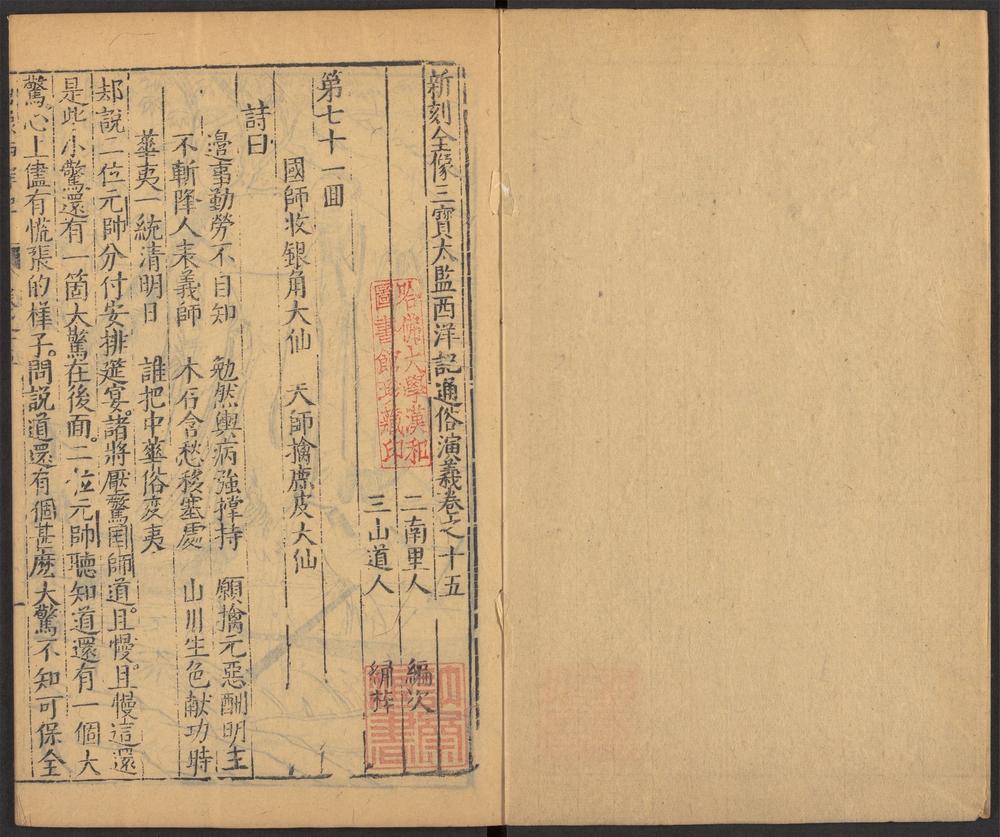 新刻全像三寶太監西洋記通俗演義卷之十五
二南里人 編次
三山道人 綉梓
哈佛大學漢和
圖書館珍藏印
第七十一囬
國師收銀角大仙 天師擒鹿皮大仙
詩曰
邊事勤勞不自知 勉然輿病強撑持 願擒元惡酬明主
不斬降人表義師 木石含愁移塞處 山川生色献功時
華夷一統清明日 誰把中華俗変夷
却說二位元帥分付安排筵宴。諸將壓驚國師道。且慢。且慢這還
是些小驚還有一箇大驚在後面。二位元帥聽知道還有一個大
驚心上儘有慌張的樣子。問說道還有個甚麽大驚不知可保全